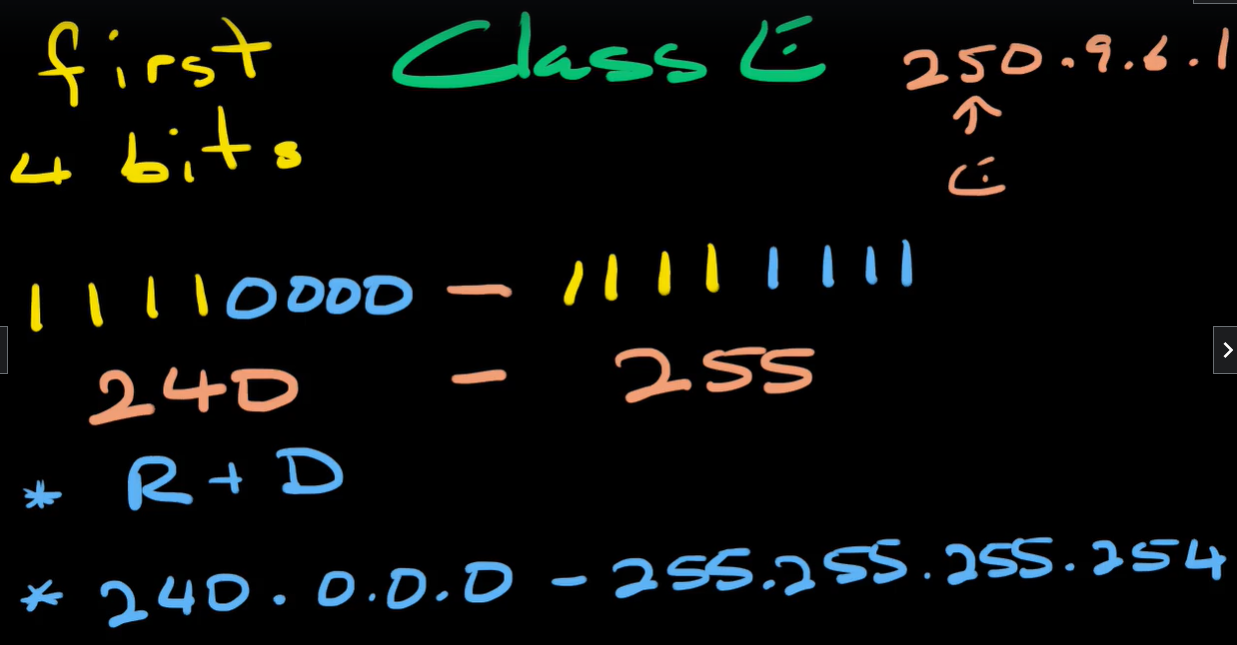 first
4 bits
Class E
250.9.6.1
↑
E
11110000 - 11111111
240 - 255
* R+D
* 240.0.0.0 - 255.255.255.254